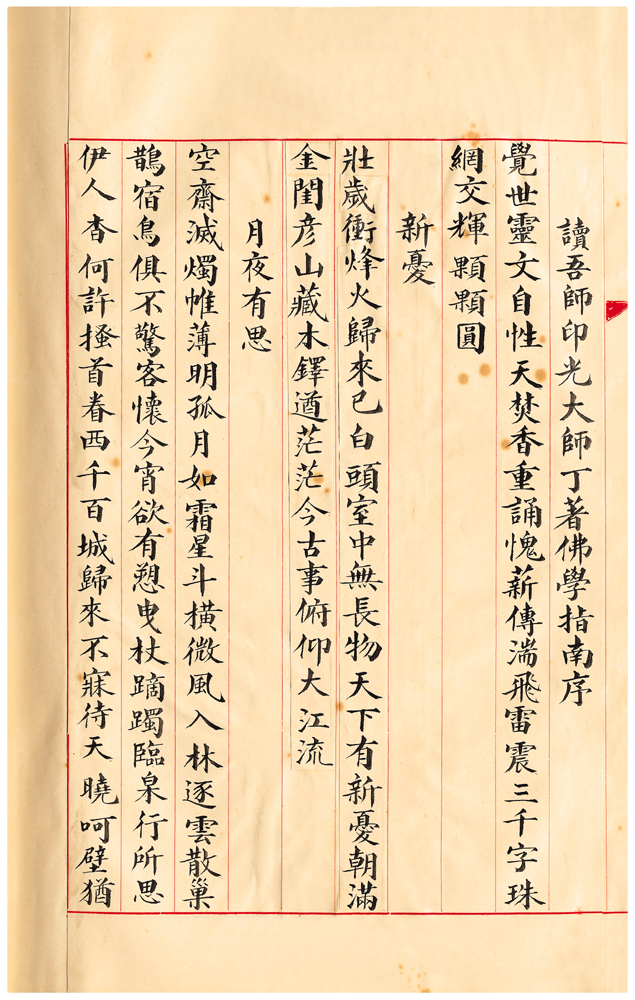 讀吾師印光大師丁著佛學指南序
覺世靈文自性天焚香重誦愧薪傳湍飛雷震三千字珠
網交輝顆顆圓
新憂
壯歲衝烽火歸來已白頭室中無長物天下有新憂朝滿
金閨彥山藏木鐸遒茫茫今古事俯仰大江流
月夜有思
空齋滅燭帷薄明孤月如霜星斗橫微風入林逐雲散巢
鵲宿鳥俱不驚客懷今宵欲有愬曳杖蹢躅臨臬行所思
伊人杳何許搔首眷西千百城歸來不寐待天曉呵壁猶